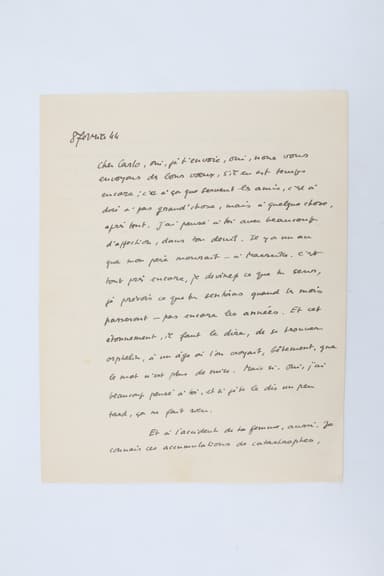 8 février 44
Cher Carlo, oui, je t'envoie, oui, nous vous
envoyons de bons vœux, s'il en est temps
encore ; c'est à ça que servent les amis, c'est à
dire à pas grand'chose, mais à quelque chose,
après tout. J'ai pensé à toi avec beaucoup
d'affection, dans ton deuil. Il y a un an
que mon père mourait — à Marseille. C'est
tout près encore, je devine ce que tu sens,
je prévois ce que tu sentiras quand les mois
passeront — pas encore les années. Et cet
étonnement, il faut le dire, de se trouver
orphelin, à un âge où l'on croyait, bêtement, que
le mot n'est plus de mise. Mais si. Oui, j'ai
beaucoup pensé à toi, et si je te le dis un peu
tard, ça ne fait rien.
Et à l'accident de ta femme, aussi. Je
connais ces accumulations de catastrophes,